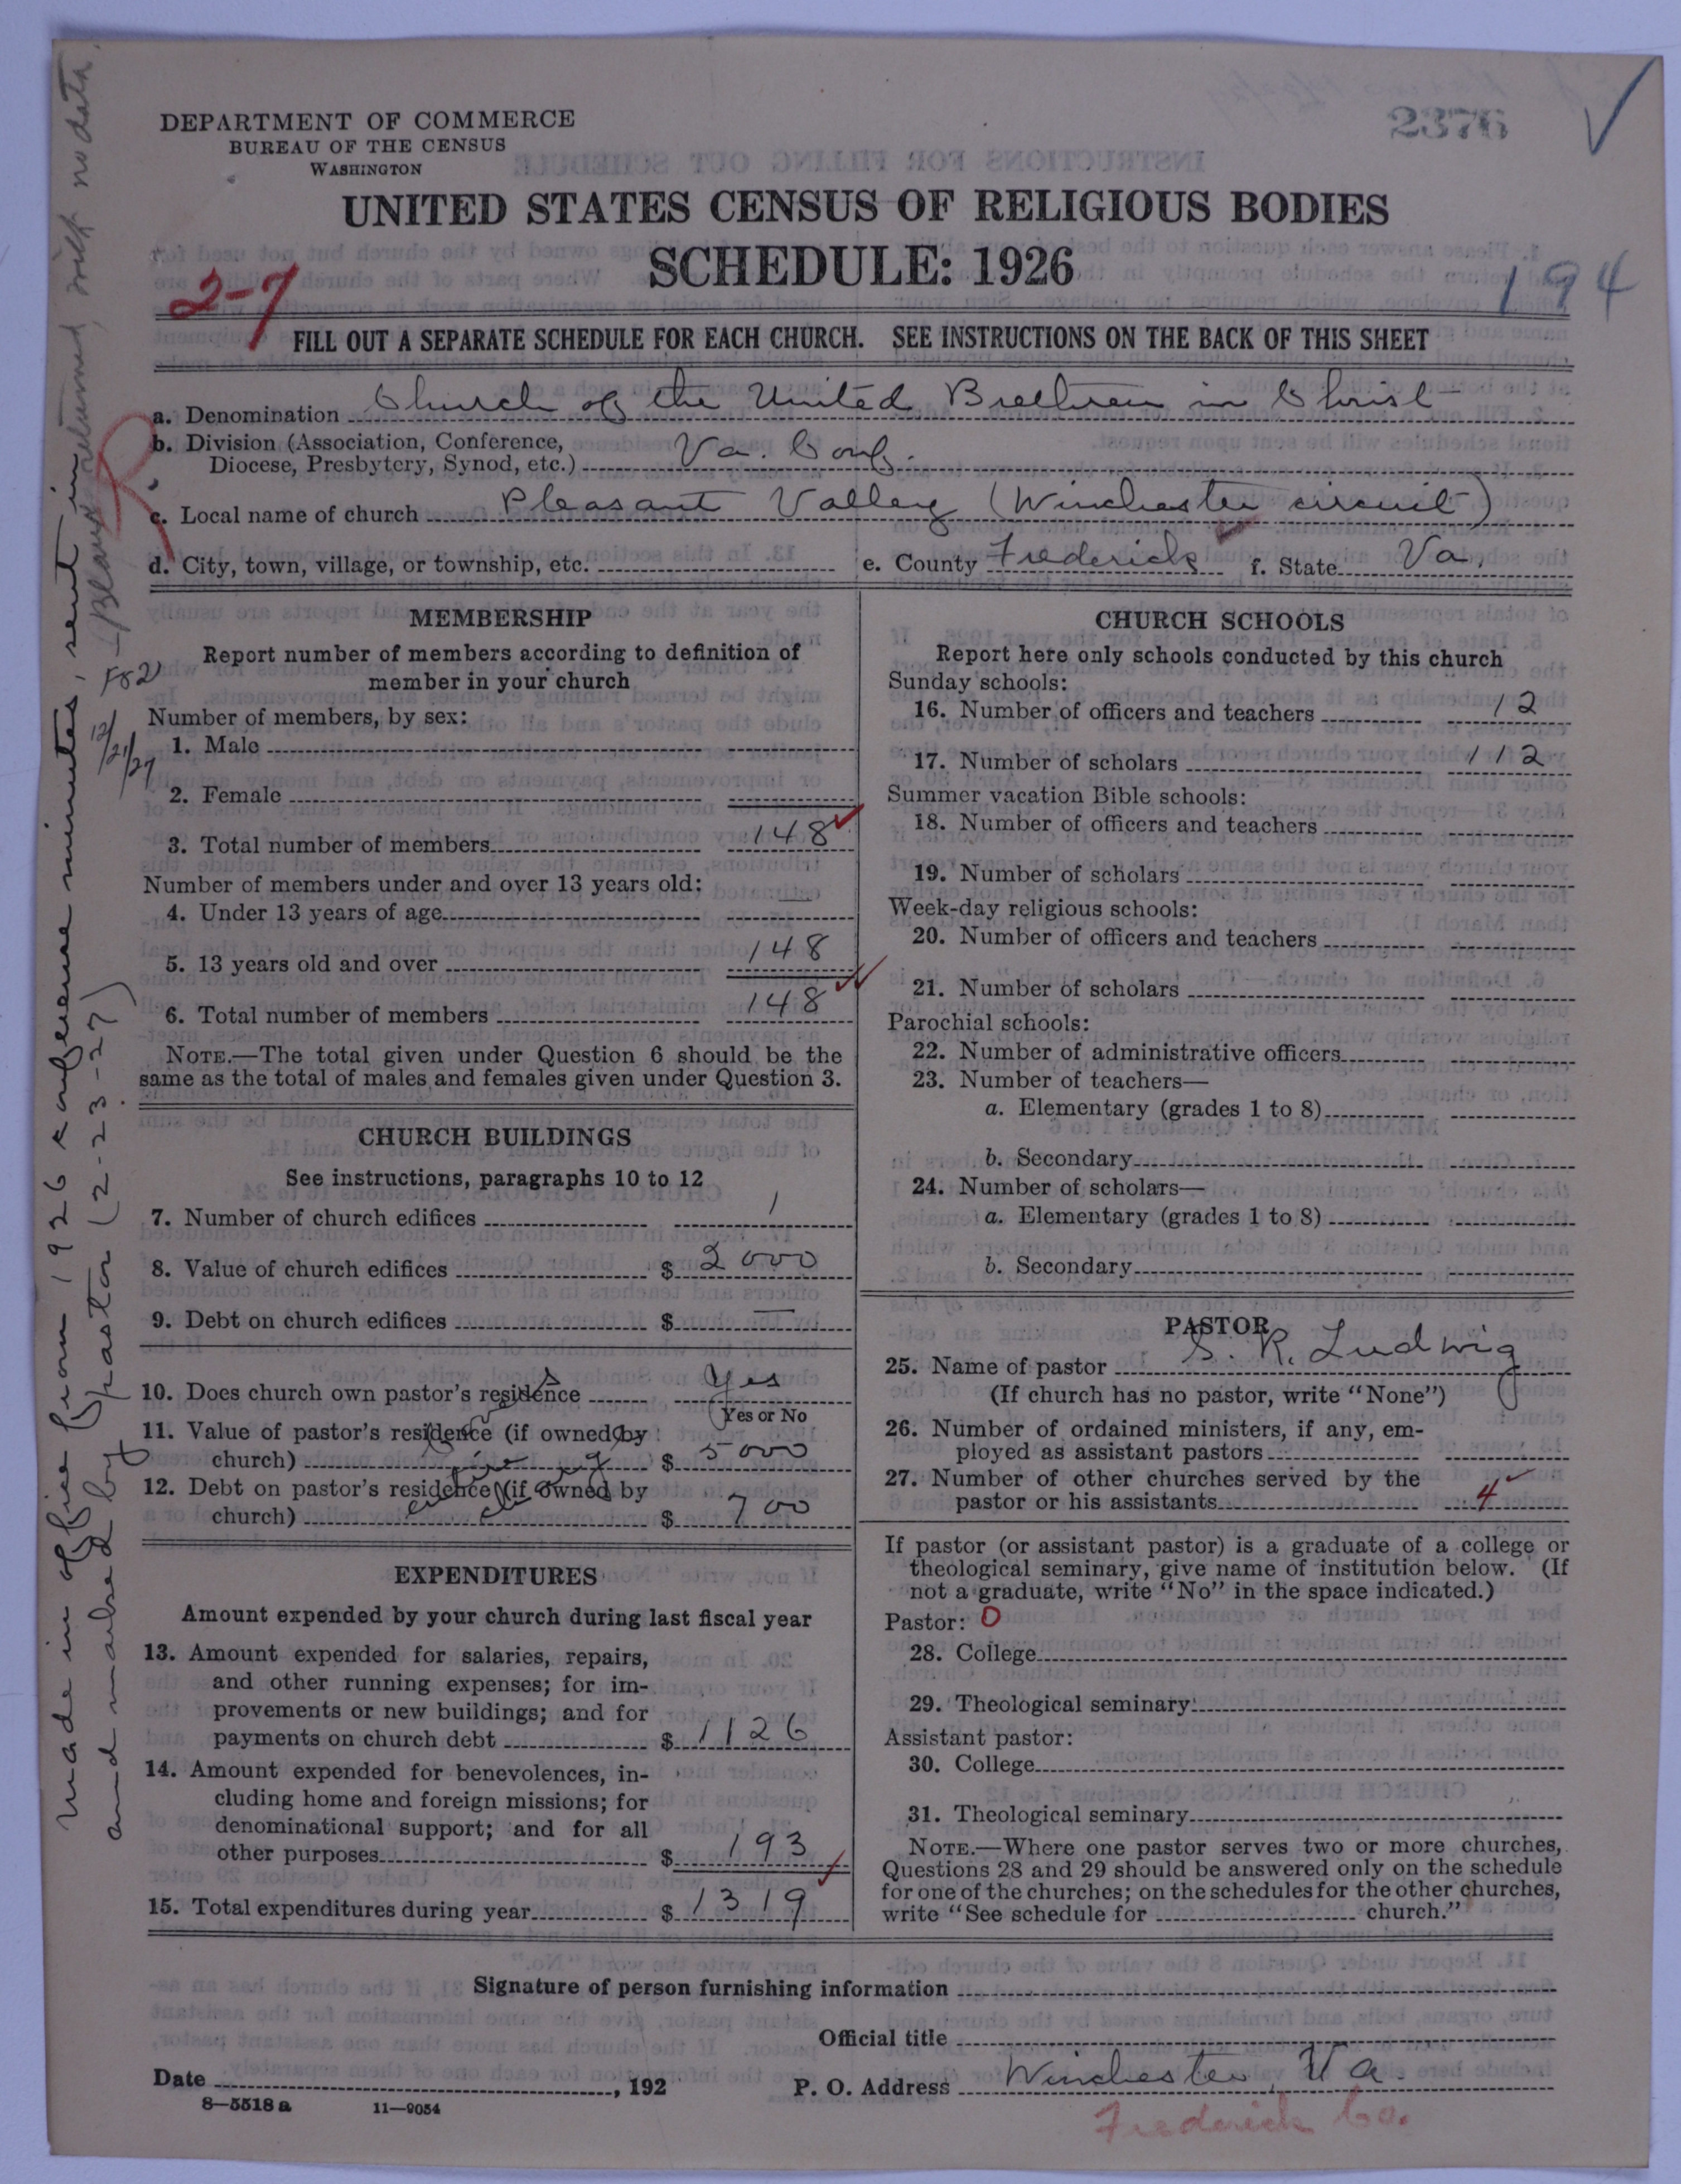 DEPARTMENT OF COMMERCE
BUREAU OF THE CENSUS
WASHINGTON
2376
UNITED STATES CENSUS OF RELIGIOUS BODIES
SCHEDULE: 1926
2-7
194
FILL OUT A SEPARATE SCHEDULE FOR EACH CHURCH. SEE INSTRUCTIONS ON THE BACK OF THIS SHEET
a. Denomination Church of the United Brethren in Christ
b. Division (Association, Conference,
Diocese, Presbytery, Synod, etc.) Va. Conf.
R
c. Local name of church Pleasant Valley (Winchester circuit)
d. City, town, village, or township, etc. e. County Frederick f. State Va.
MEMBERSHIP
Report number of members according to definition of
member in your church
Number of members, by sex:
1. Male
2. Female
3. Total number of members 148
Number of members under and over 13 years old:
4. Under 13 years of age —
5. 13 years old and over 148
6. Total number of members 148
NOTE.—The total given under Question 6 should be the
same as the total of males and females given under Question 3.
CHURCH BUILDINGS
See instructions, paragraphs 10 to 12
7. Number of church edifices 1
8. Value of church edifices $ 2000
9. Debt on church edifices $ —
10. Does church own pastor's residence Yes
Yes or No
11. Value of pastor's residence (if owned by
church) $ 5000
12. Debt on pastor's residence (if owned by
church) $ 700
EXPENDITURES
Amount expended by your church during last fiscal year
13. Amount expended for salaries, repairs,
and other running expenses; for im-
provements or new buildings; and for
payments on church debt $ 1126
14. Amount expended for benevolences, in-
cluding home and foreign missions; for
denominational support; and for all
other purposes $ 193
15. Total expenditures during year $ 1319
CHURCH SCHOOLS
Report here only schools conducted by this church
Sunday schools:
16. Number of officers and teachers 12
17. Number of scholars 112
Summer vacation Bible schools:
18. Number of officers and teachers
19. Number of scholars
Week-day religious schools:
20. Number of officers and teachers
21. Number of scholars
Parochial schools:
22. Number of administrative officers
23. Number of teachers—
a. Elementary (grades 1 to 8)
b. Secondary
24. Number of scholars—
a. Elementary (grades 1 to 8)
b. Secondary
PASTOR
25. Name of pastor S. R. Ludwig
(If church has no pastor, write "None")
26. Number of ordained ministers, if any, em-
ployed as assistant pastors
27. Number of other churches served by the
pastor or his assistants 4
If pastor (or assistant pastor) is a graduate of a college or
theological seminary, give name of institution below. (If
not a graduate, write "No" in the space indicated.)
Pastor: O
28. College
29. Theological seminary
Assistant pastor:
30. College
31. Theological seminary
NOTE.—Where one pastor serves two or more churches,
Questions 28 and 29 should be answered only on the schedule
for one of the churches; on the schedules for the other churches,
write "See schedule for church."
Signature of person furnishing information
Official title
Date , 192
P. O. Address Winchester, Va.
8—5518 a 11—9054
Frederick Co.
Made in office from 1926 conference minutes, sent in
and marked by pastor (2-23-27)
(Blank returned, with no data.
F82
12/21/27